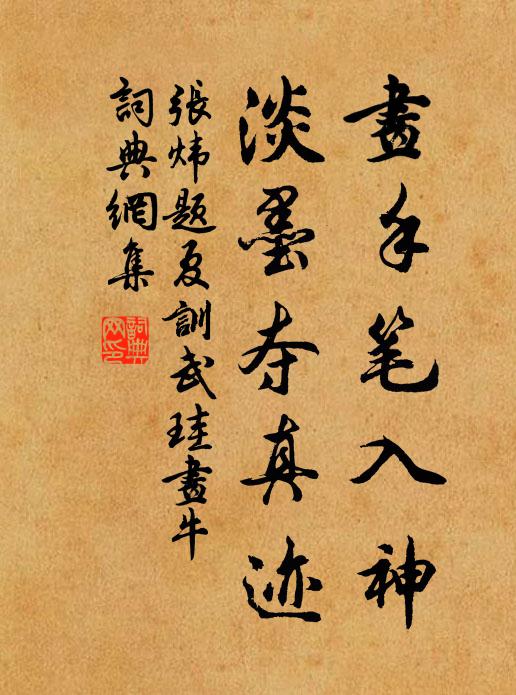 畫手笔入神
淡墨夺真迹
張炜題夏訓武珪畫牛
詞典網集
詞典网印